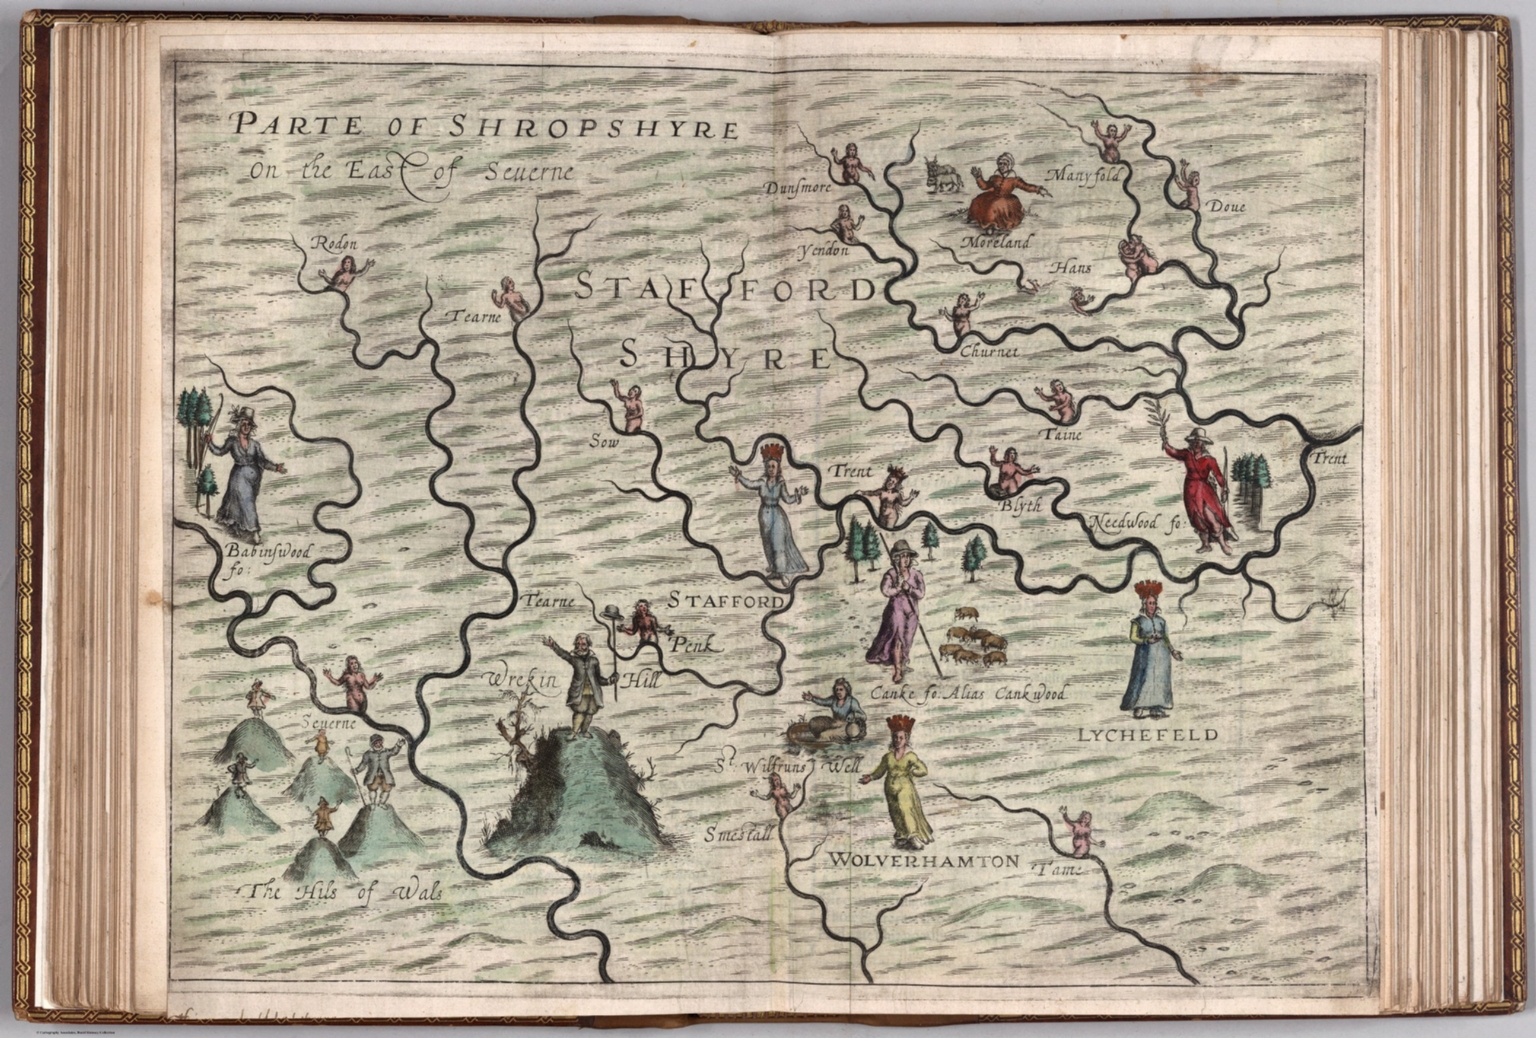 PARTE OF SHROPSHYRE
On the East of Seuerne
Dunsmore
Manyfold
Doue
Yendon
Moreland
Hans
Rodon
Tearne
STAFFORD
SHYRE
Churnet
Sow
Taine
Trent
Trent
Blyth
Needwood fo:
Babinswood
fo:
Tearne
STAFFORD
Penk
Wrekin Hill
Canke fo: Alias Cankwood
Seuerne
LYCHEFELD
St. Wilfruns Well
Smestall
WOLVERHAMTON
Tame
The Hils of Wals